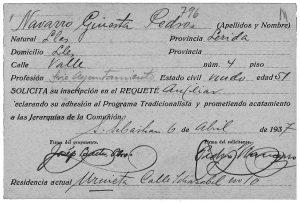 796
Navarro Ginesta Pedro (Apellidos y Nombre)
Natural Lles Provincia Lerida
Domicilio Lles Provincia
Calle Valle núm. 4 piso
Profesión Estado civil viudo edad 51
SOLICITA su inscripción en el REQUETÉ Auxiliar
declarando su adhesión al Programa Tradicionalista y prometiendo acatamiento
a las Jerarquías de la Comunión.
S. Sebastian 6 de Abril de 1937
Firma del proponente. Firma del solicitante.
Pedro Navarro
Residencia actual Urnieta Calle nº 10